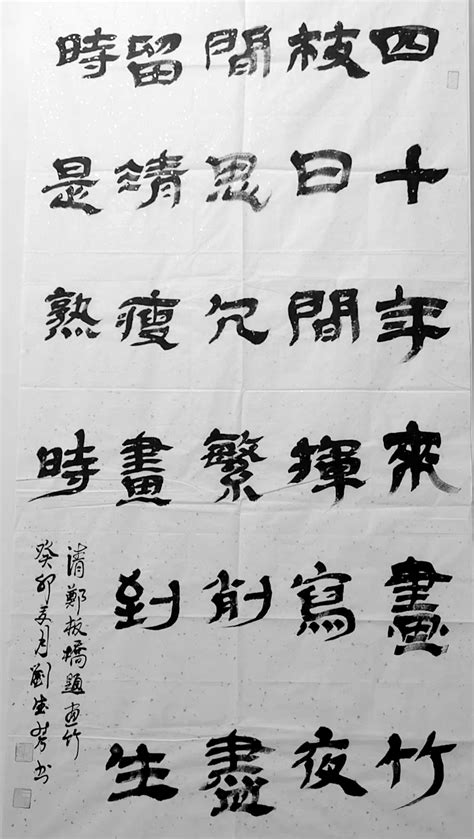 四十年來畫竹
枝日間揮寫夜
間思冗繁削盡
留清瘦畫到生
時是熟時
清鄭板橋題画竹
癸卯夏月劉書